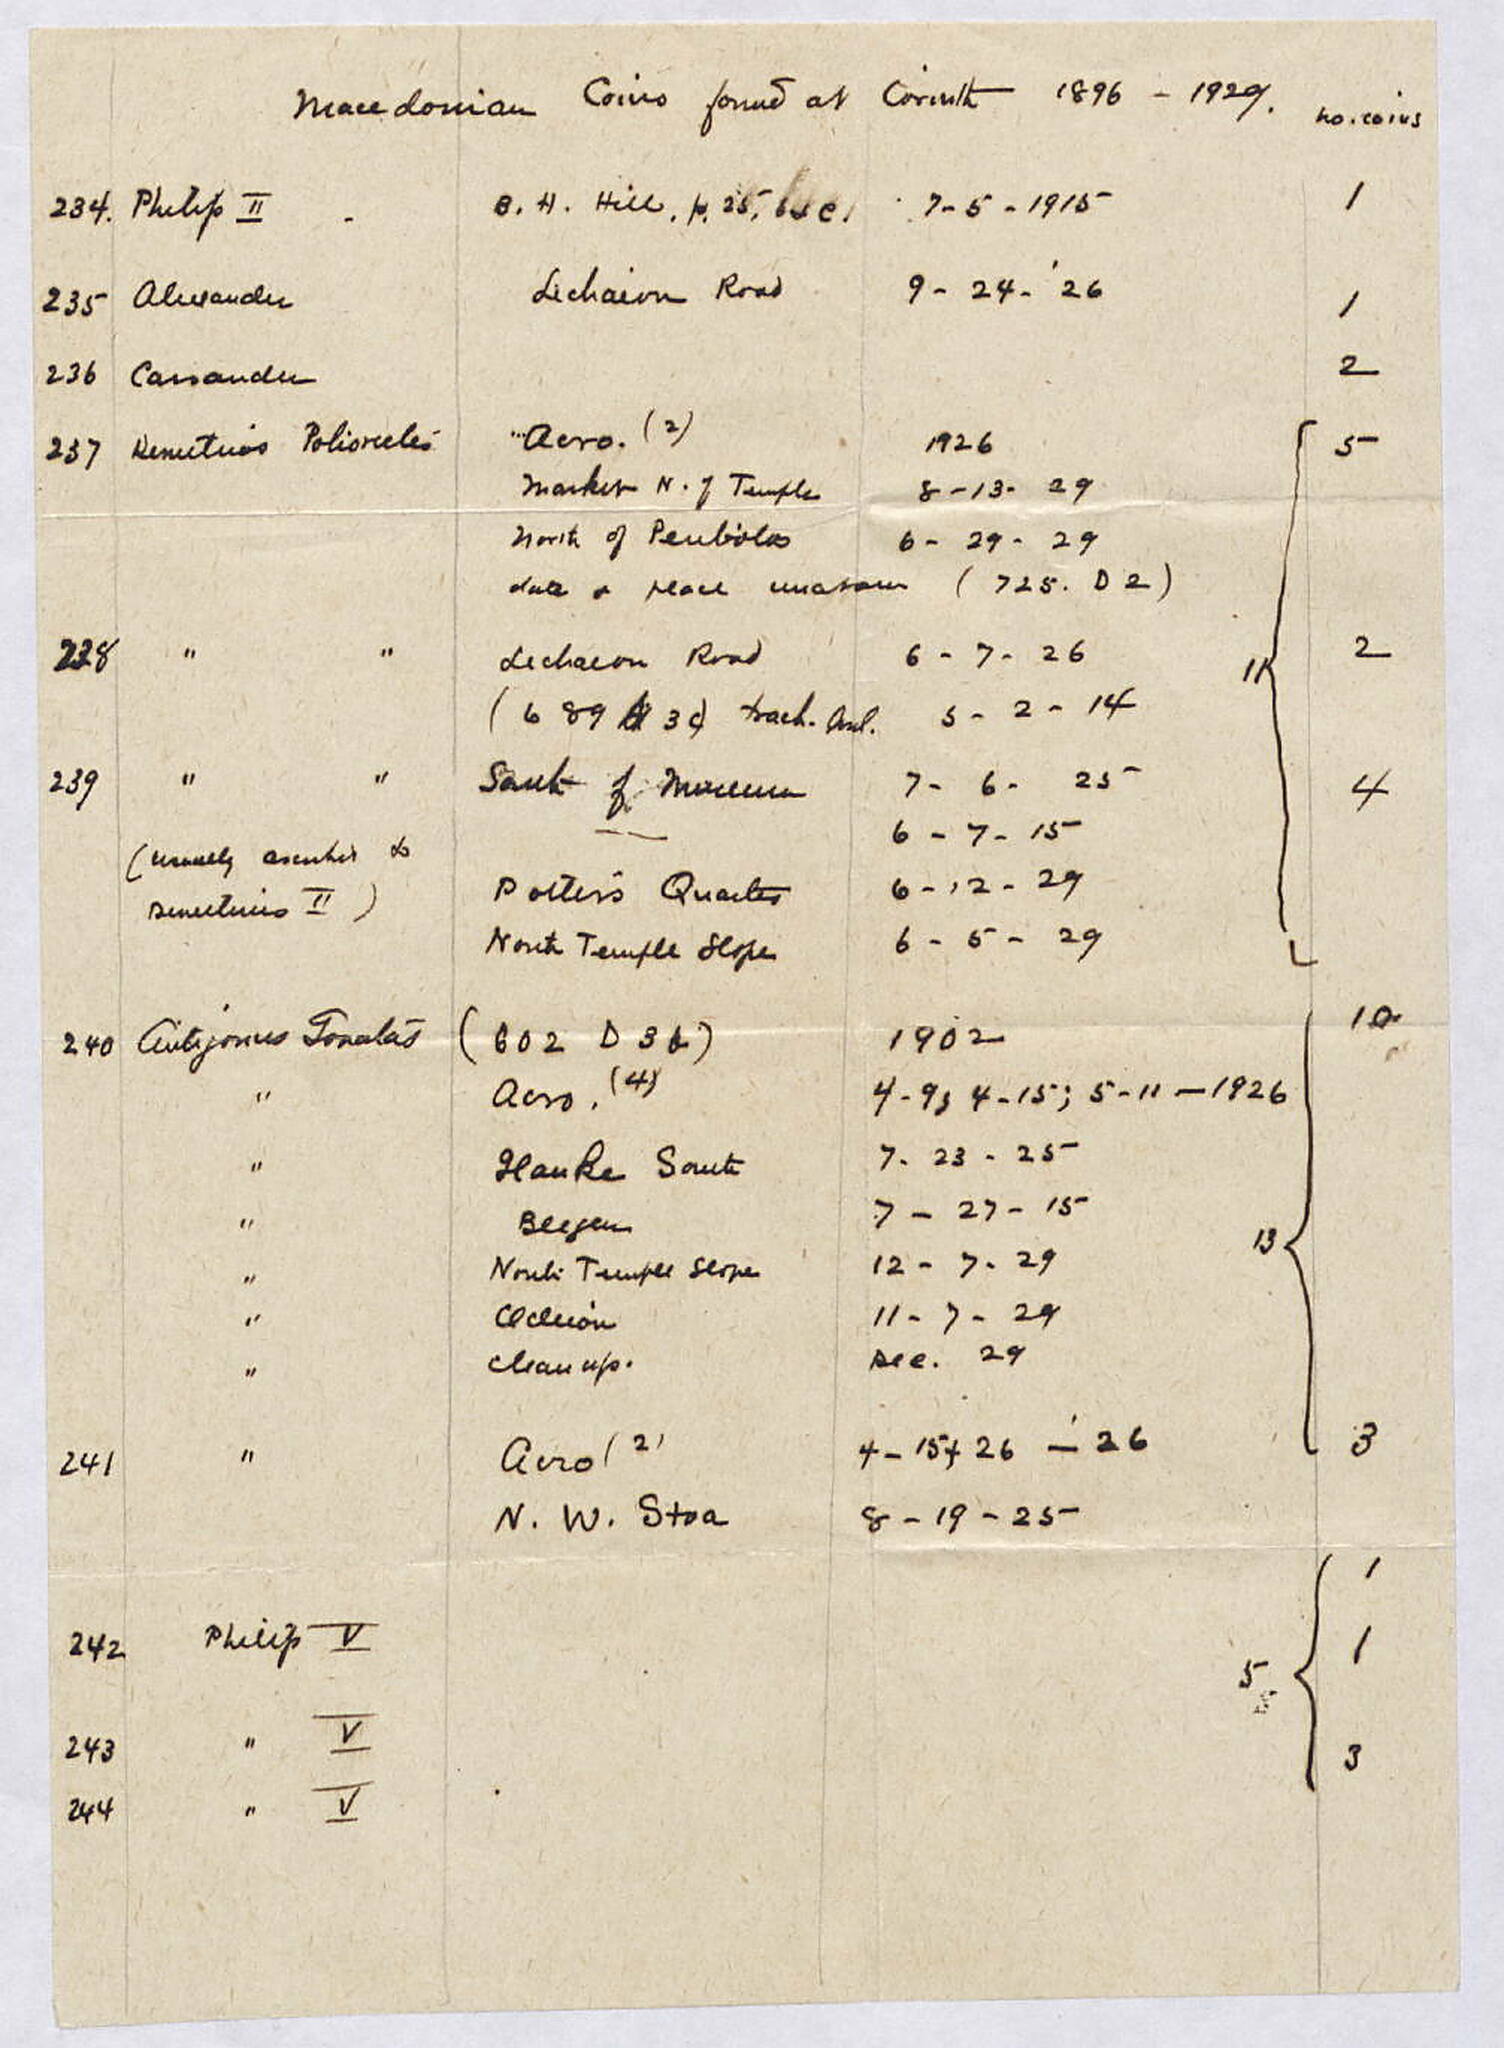 Macedonian Coins found at Corinth 1896 - 1929. no. coins
234. Philip II - B. H. Hill, p. 25, 7-5-1915 1
235 Alexander Lechaion Road 9-24-'26 1
236 Cassander 2
237 Demetrios Poliorcetes Acro. (2) 1926 5
Market N. of Temple 8-13-29
North of Peribolos 6-29-29
date & place unknown (725. D 2)
238 " " Lechaeon Road 6-7-26 11 2
(689 3c) 5-2-14
239 " " South of Museum 7-6-25 4
6-7-15
(usually ascribed to
Demetrius II) Potters Quarter 6-12-29
North Temple Slope 6-5-29
240 Antigonus Gonatas (602 D 3b) 1902 10
" Acro. (4) 4-9; 4-15; 5-11-1926
" Glauke South 7-23-25
" Blegen 7-27-15
" North Temple Slope 12-7-29 13
" Odeion 11-7-29
" Clean up. Dec. 29
241 " Acro (2) 4-15+26-'26 3
N. W. Stoa 8-19-25
1
242 Philip V 1
5
243 " V 3
244 " V